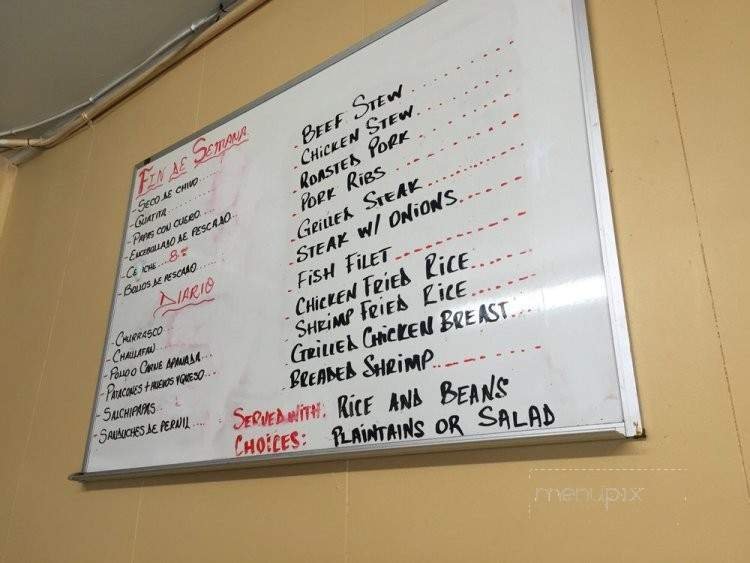 FIN DE SEMANA
- SECO DE CHIVO.....
- GUATITA..........
- PAPAS CON CUERO....
- ENCEBOLLADO DE PESCADO..
- CE ICHE....8.00
- BOLLOS DE PESCADO.....
DIARIO
- CHURRASCO...
- CHAULAFAN...
- POLLO O CARNE APANADA..
- PATACONES + HUEVOS Y QUESO....
- SALCHIPAPAS....
- SANDUCHES DE PERNIL....
- BEEF STEW............
- CHICKEN STEW..........
- ROASTED PORK..........
- PORK RIBS............
- GRILLED STEAK........
- STEAK W/ ONIONS......
- FISH FILET..........
- CHICKEN FRIED RICE.....
- SHRIMP FRIED RICE......
- GRILLED CHICKEN BREAST...
- BREADED SHRIMP.........
SERVED WITH: RICE AND BEANS
CHOICES: PLAINTAINS OR SALAD
menupix